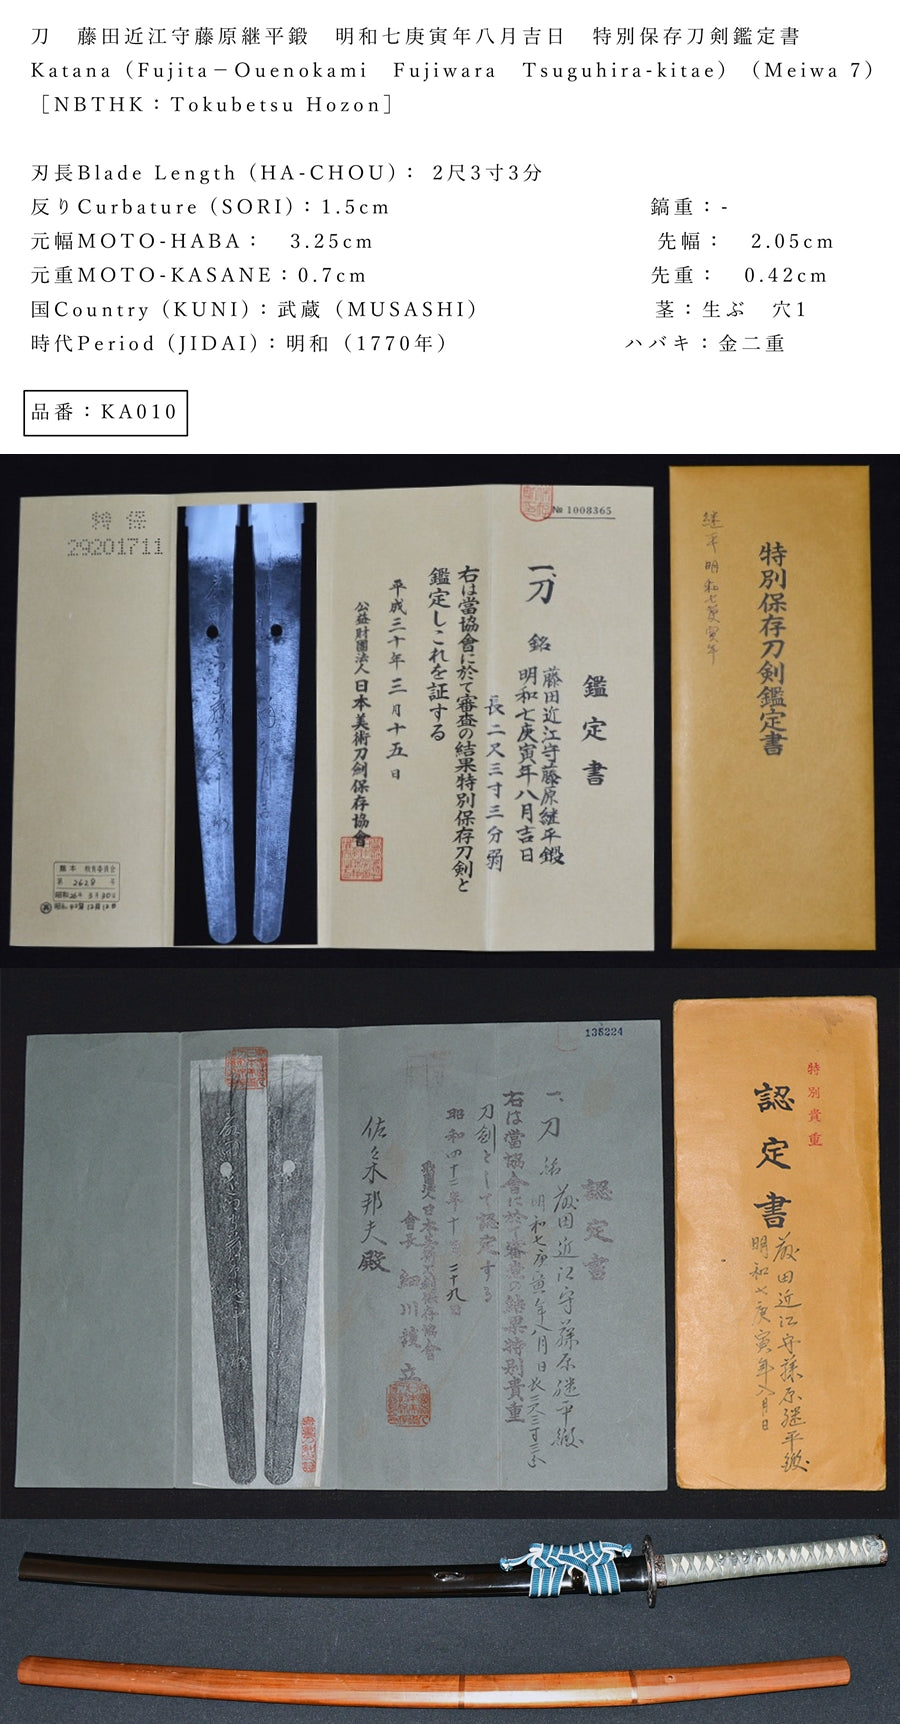 刀　藤田近江守藤原継平鍛　明和七庚寅年八月吉日　特別保存刀剣鑑定書
Katana（Fujita－Ouenokami　Fujiwara　Tsuguhira-kitae）（Meiwa 7）
［NBTHK：Tokubetsu Hozon］
刃長Blade Length（HA-CHOU）： 2尺3寸3分
反りCurbature（SORI）：1.5cm
鎬重：-
元幅MOTO-HABA：　3.25cm
先幅：　2.05cm
元重MOTO-KASANE：0.7cm
先重：　0.42cm
国Country（KUNI）：武蔵（MUSASHI）
茎：生ぶ　穴1
時代Period（JIDAI）：明和（1770年）
ハバキ：金二重
品番：KA010
№ 1008365
鑑定書
一、刀　銘　藤田近江守藤原継平鍛
明和七庚寅年八月吉日
長二尺三寸三分弱
右は當協會に於て審査の結果特別保存刀剣と
鑑定しこれを証する
平成三十年三月十五日
公益財團法人日本美術刀剣保存協會
特保
29201711
熊本 教育委員会
第 2628 号
特別保存刀剣鑑定書
継平 明和七庚寅年
135224
認定書
一、刀　銘　藤田近江守藤原継平鍛
明和七庚寅年八月日 長二尺三寸三分
右は當協會に於て審査の結果特別貴重
刀剣として認定する
昭和四十二年十月二十九日
財團法人日本美術刀剣保存協會
會長　細川護立
佐々木邦夫殿
特別貴重
認定書
藤田近江守藤原継平鍛
明和七庚寅年八月日